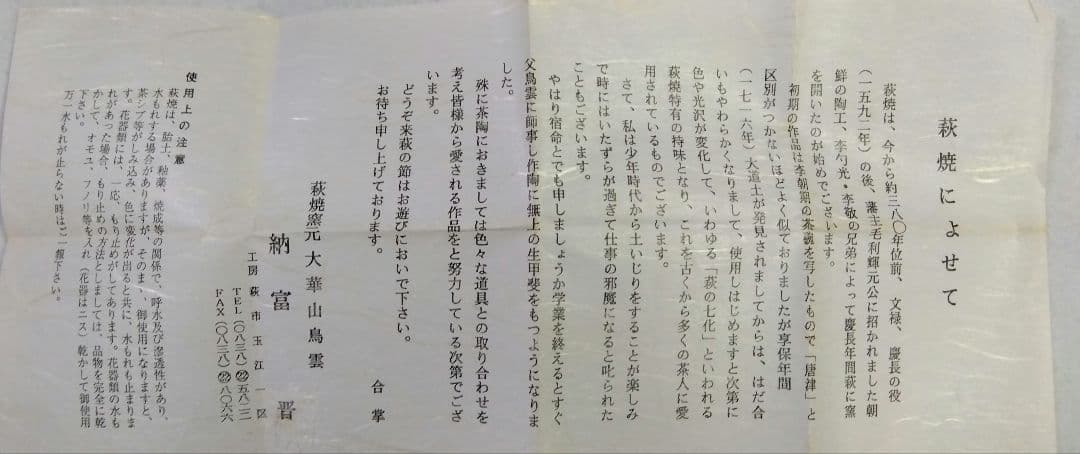 萩焼によせて
萩焼は、今から約三八〇年位前、文禄、慶長の役
(一五九二年)の後、藩主毛利輝元公に招かれました朝
鮮の陶工、李勺光・李敬の兄弟によって慶長年間萩に窯
を開いたのが始めでございます。
初期の作品は李朝期の茶碗を写したもので「唐津」と
区別がつかないほどよく似ておりましたが享保年間
(一七一六年)大道土が発見されましてからは、はだ合
いもやわらかくなりまして、使用しはじめますと次第に
色や光沢が変化して、いわゆる「萩の七化」といわれる
萩焼特有の持味となり、これを古くから多くの茶人に愛
用されているものでございます。
さて、私は少年時代から土いじりをすることが楽しみ
で時にはいたずらが過ぎて仕事の邪魔になると叱られた
こともございます。
やはり宿命とでも申しましょうか学業を終えるとすぐ
父鳥雲に師事し作陶に無上の生甲斐をもつようになりま
した。
殊に茶陶におきましては色々な道具との取り合わせを
考え皆様から愛される作品をと努力している次第でござ
います。
どうぞ来萩の節はお遊びにおいで下さい。
お待ち申し上げております。
合掌
萩焼窯元 大華山鳥雲
納富晋
工房 萩市玉江一区
TEL(〇八三八)㉒五八一二
FAX(〇八三八)㉒八〇六六
使用上の注意
萩焼は、胎土、釉薬、焼成等の関係で、呼水及び滲透性があり、
水もれする場合がありますが、そのまゝ、御使用になりますと、
茶シブ等がしみ込み、色に変化が出ると共に、水もれも止まりま
す。花器類には、一応、もり止めがしてあります。花器類の水も
れがあった場合、もり止めの方法としましては、品物を完全に乾
かして、オモユ、フノリ等を入れ(花器はニス)乾かして御使用
下さい。
万一水もれが止らない時はご一報下さい。